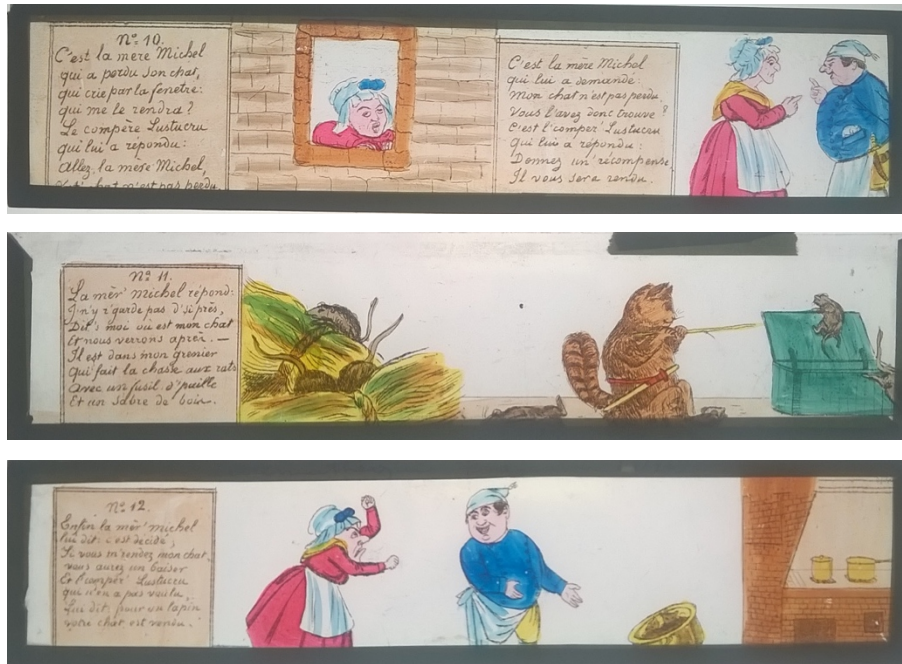 No. 10.
C'est la mère Michel
qui a perdu son chat,
qui crie par la fenêtre:
qui me le rendra?
Le compère Lustucru
qui lui a répondu:
Allez, la mère Michel,
chat n'est pas perdu
C'est la mère Michel
qui lui a demandé:
Mon chat n'est pas perdu,
Vous l'avez donc trouvé?
C'est l'comper' Lustucru
qui lui a répondu:
Donnez un' récompense
Il vous sera rendu.
No. 11.
La mèr' Michel répond:
J'n'y r'garde pas d'si près,
Dit's moi où est mon chat
Et nous verrons après. —
Il est dans mon grenier
Qui fait la chasse aux rats
Avec un fusil d'paille
Et un sabre de bois.
No. 12.
Enfin la mèr' Michel
lui dit: c'est décidé,
Si vous m'rendez mon chat,
vous aurez un baiser
Et l'compèr' Lustucru
qui n'en a pas voulu,
Lui dit: pour un lapin
votre chat est vendu.